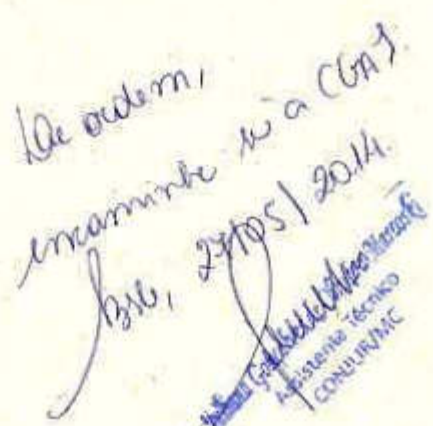 De ordem,
encaminhe se a CGAJ.
Bsb, 27/05/2014.
Assistente Técnico
CONJUR/MC